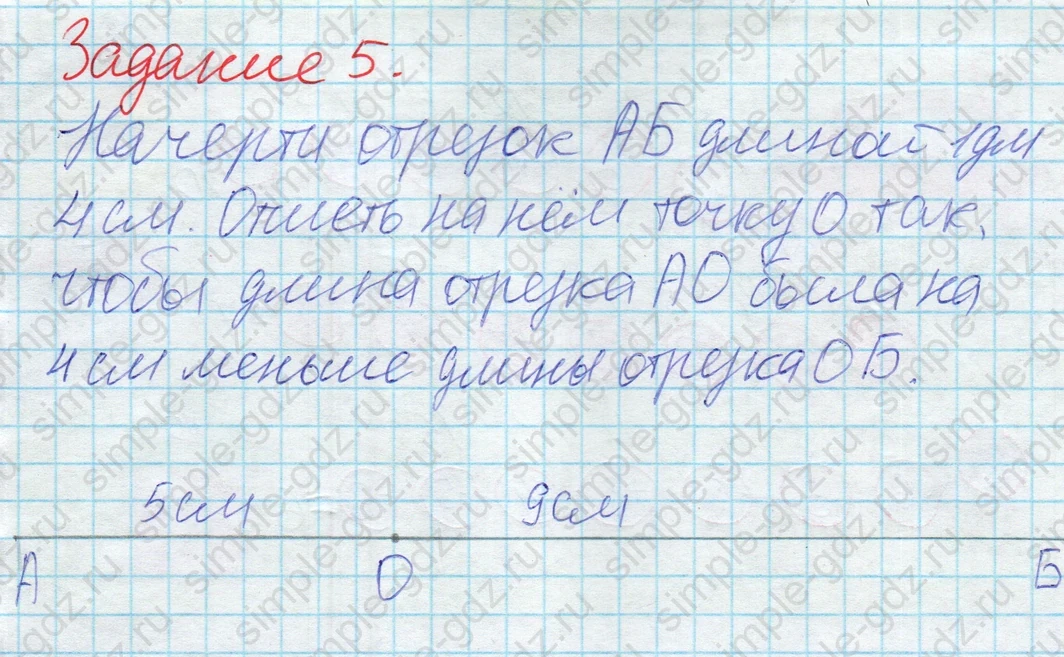 Задание 5.
Начерти отрезок АБ длиной 1дм
4 см. Отметь на нём точку О так,
чтобы длина отрезка АО была на
4 см меньше длины отрезка ОБ.
5 см 9 см
А О Б
simple-gdz.ru